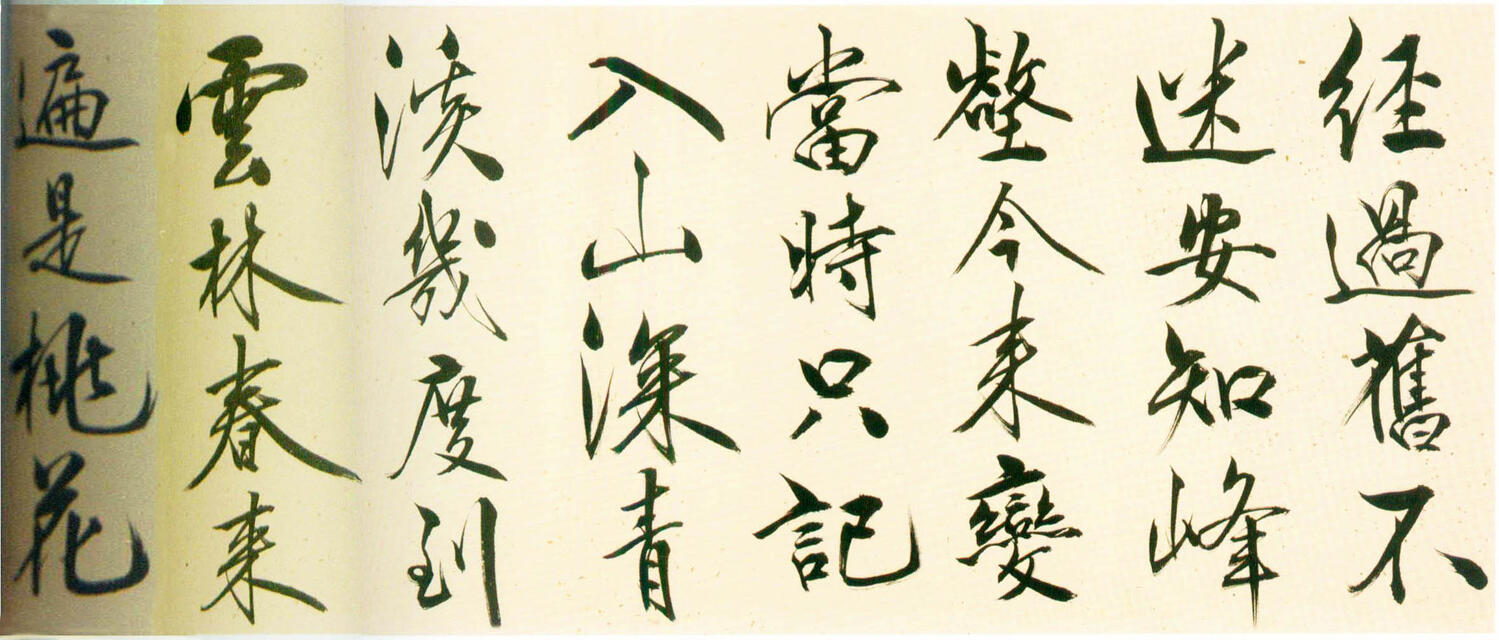 經過舊不
迷安知峰
壑今来變
當時只記
入山深青
溪幾度到
雲林春来
遍是桃花